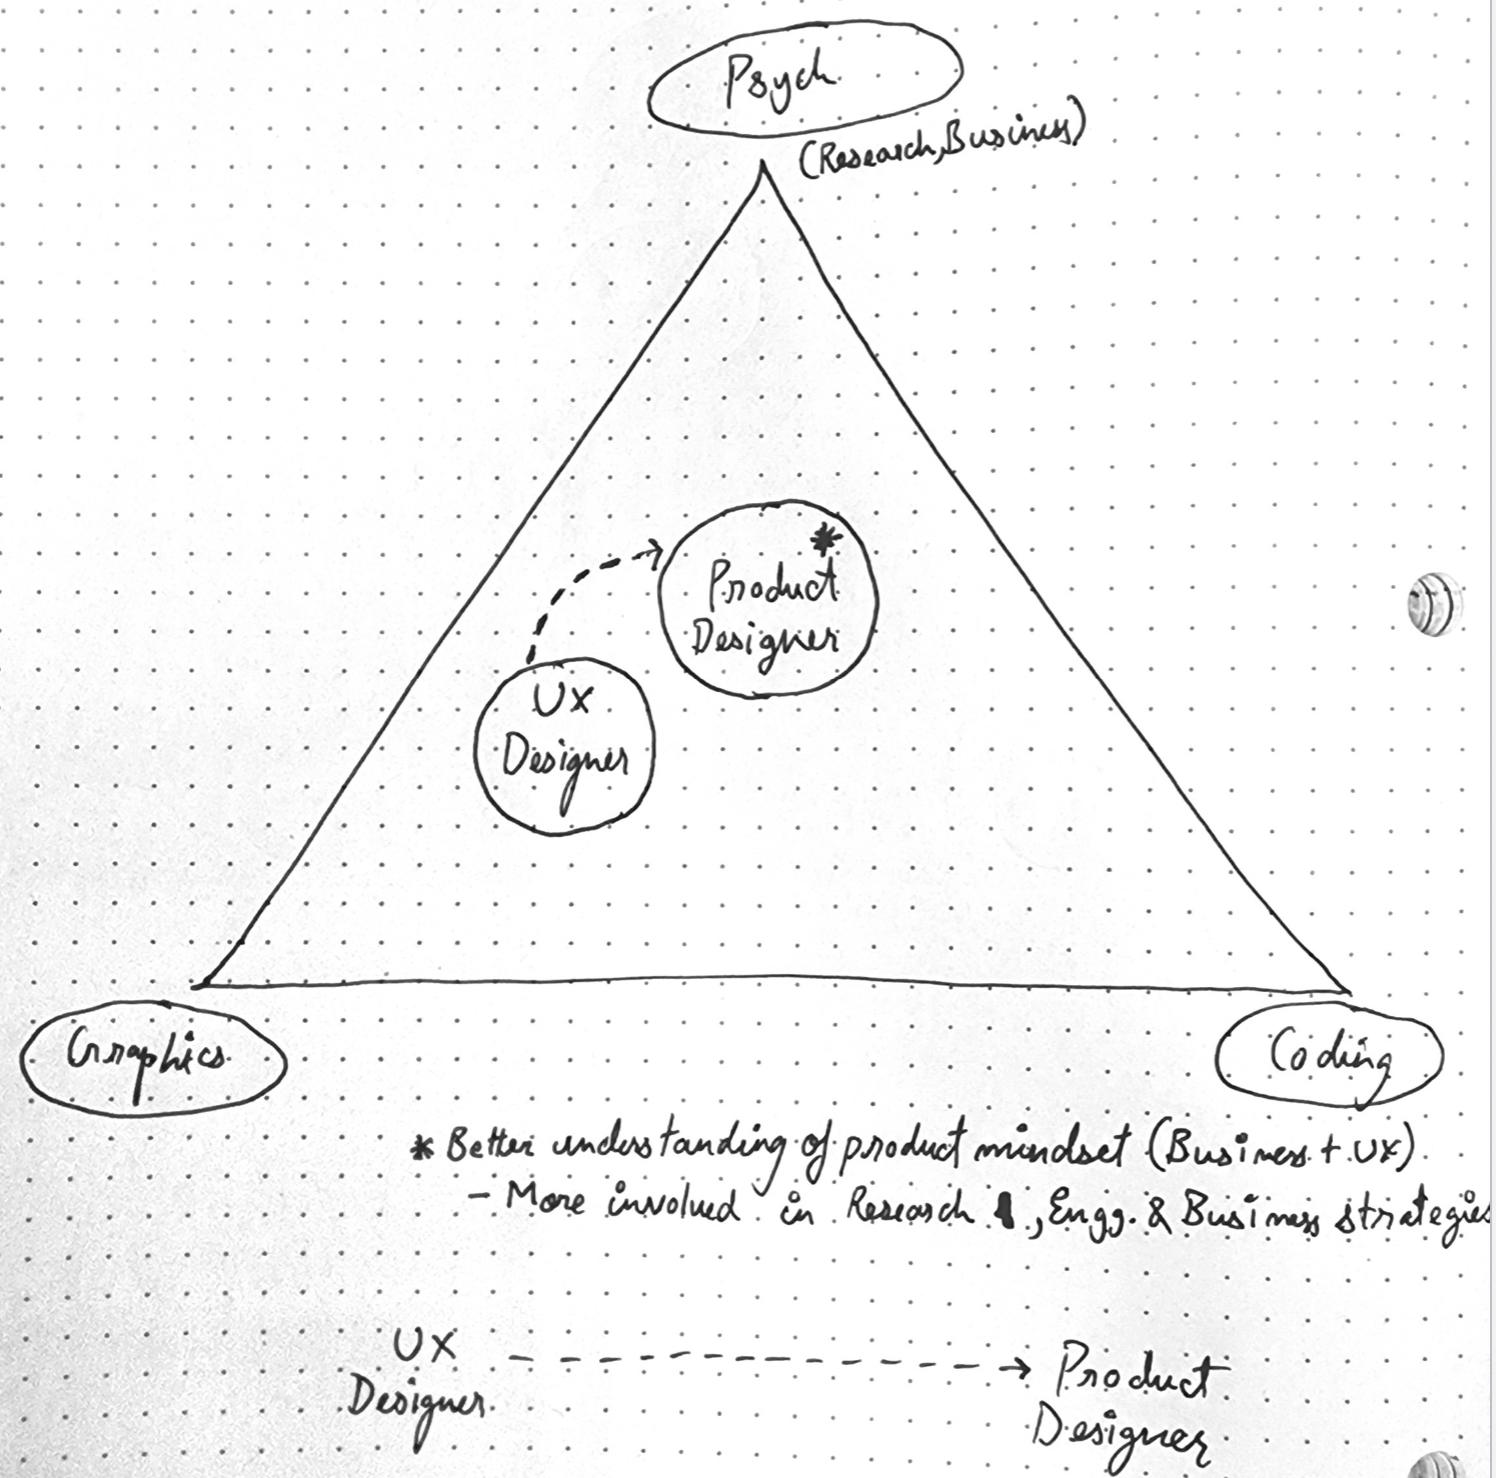 Psych
(Research, Business)
*
Product
Designer
UX
Designer
Graphics
Coding
* Better understanding of product mindset (Business + UX)
- More involved in Research , Engg. & Business strategies
UX
Designer
Product
Designer